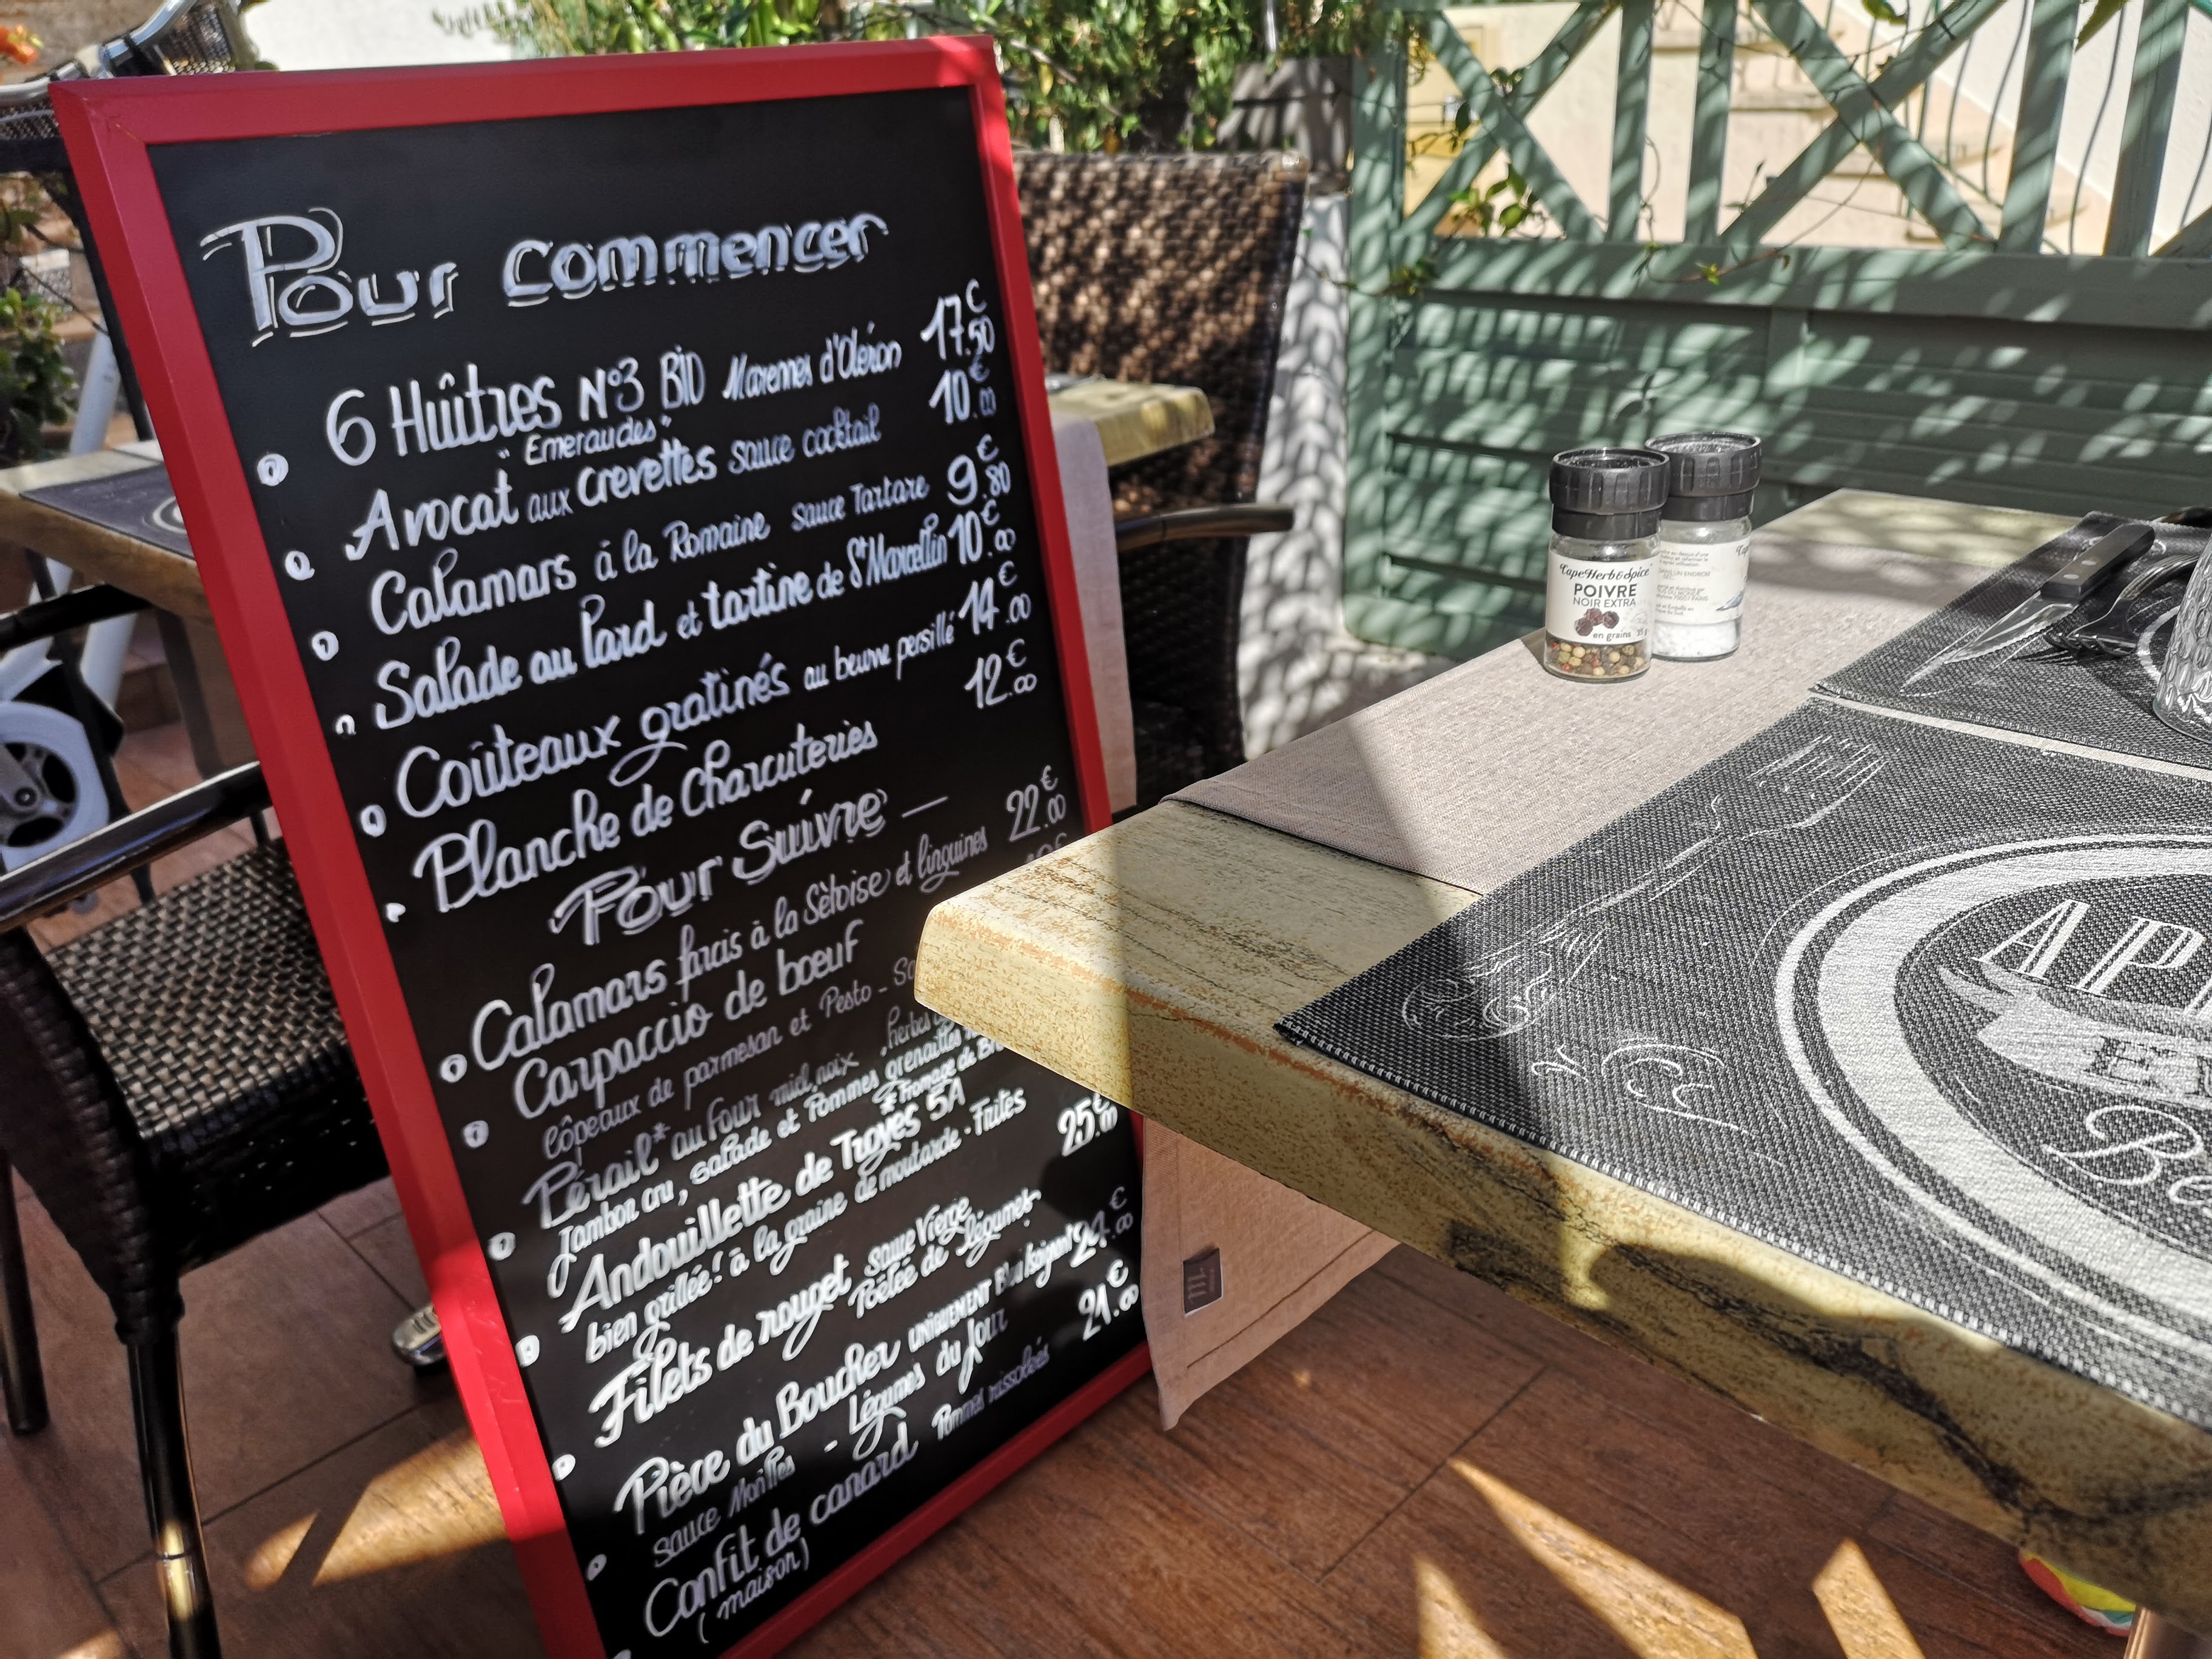 Pour commencer
6 Huîtres N°3 BIO Marennes d'Oléron 17.50€
"Emeraudes"
Avocat aux crevettes sauce cocktail 10.00€
Calamars à la Romaine sauce Tartare 9.80€
Salade au lard et tartine de St Marcellin 10.00€
Coûteaux gratinés au beurre persillé 14.00€
Planche de Charcuteries 12.00€
Pour Suivre
Calamars frais à la Sètoise et linguines 22.00€
Carpaccio de bœuf
côpeaux de parmesan et Pesto -
Pérail* au four miel, noix, herbes
Jambon cru, salade et Pommes grenailles
* Fromage de
Andouillette de Troyes 5A
bien grillée! à la graine de moutarde - Frites
Filets de rouget sauce Vierge 25.00€
Poêlée de légumes
Pièce du Boucher UNIQUEMENT 24.00€
sauce Morilles - Légumes du Jour
Confit de canard Pommes rissolées 21.00€
(maison)
CapeHerb&Spice
POIVRE
NOIR EXTRA
en grains